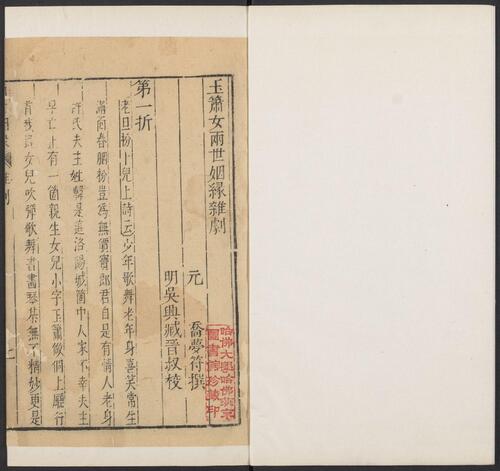 玉簫女兩世姻緣雜劇
元　喬夢符撰
明吳興臧晉叔校
哈佛大學哈佛燕京
圖書館珍藏印
第一折
老旦扮卜兒上詩云少年歌舞老年身喜笑常生
滿面春胭粉豈爲無價寶郎君自是有情人老身
許氏夫主姓韓是這洛陽城箇中人家不幸夫主
早亡止有一箇親生女兒小字玉簫做個上廳行
首我這女兒吹彈歌舞書畫琴棊無不精妙更是